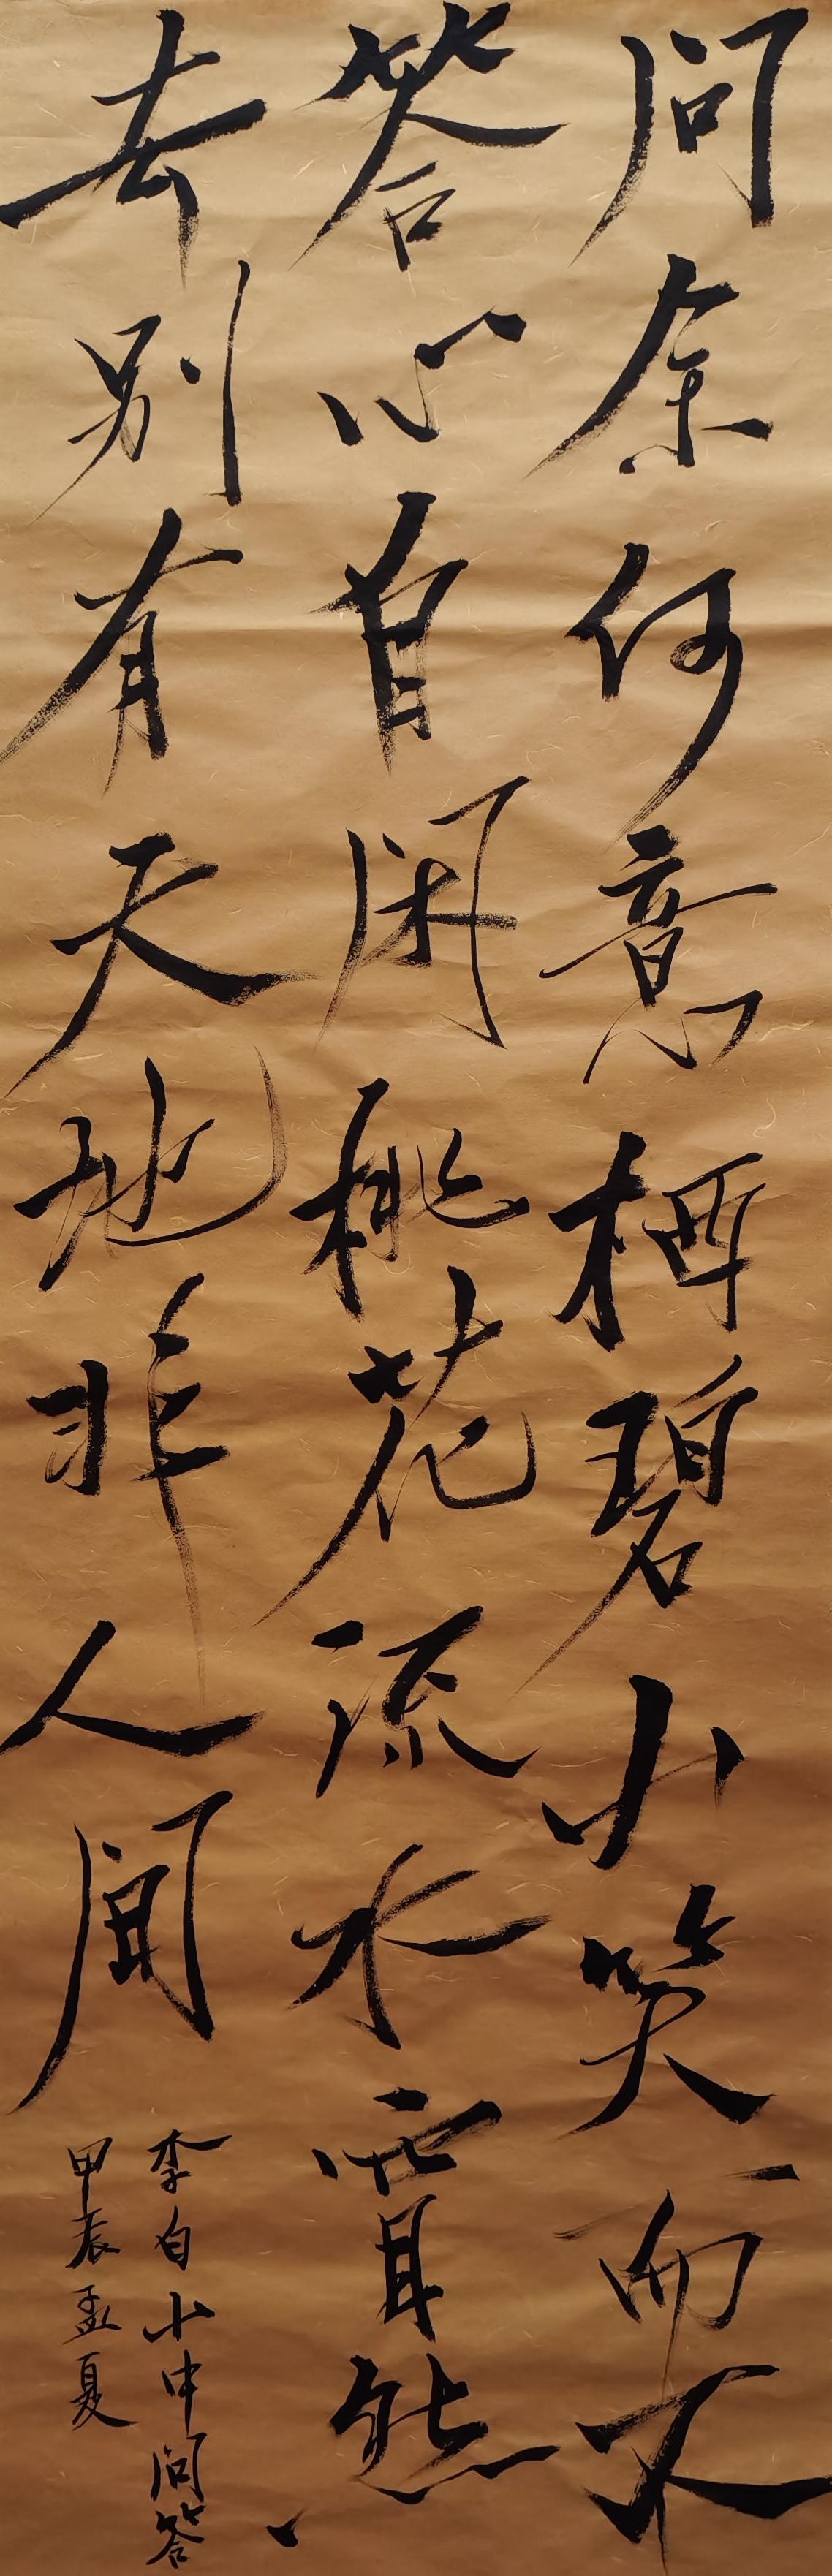 问余何意栖碧山笑而不
答心自闲桃花流水窅然
去别有天地非人间
李白山中问答
甲辰孟夏